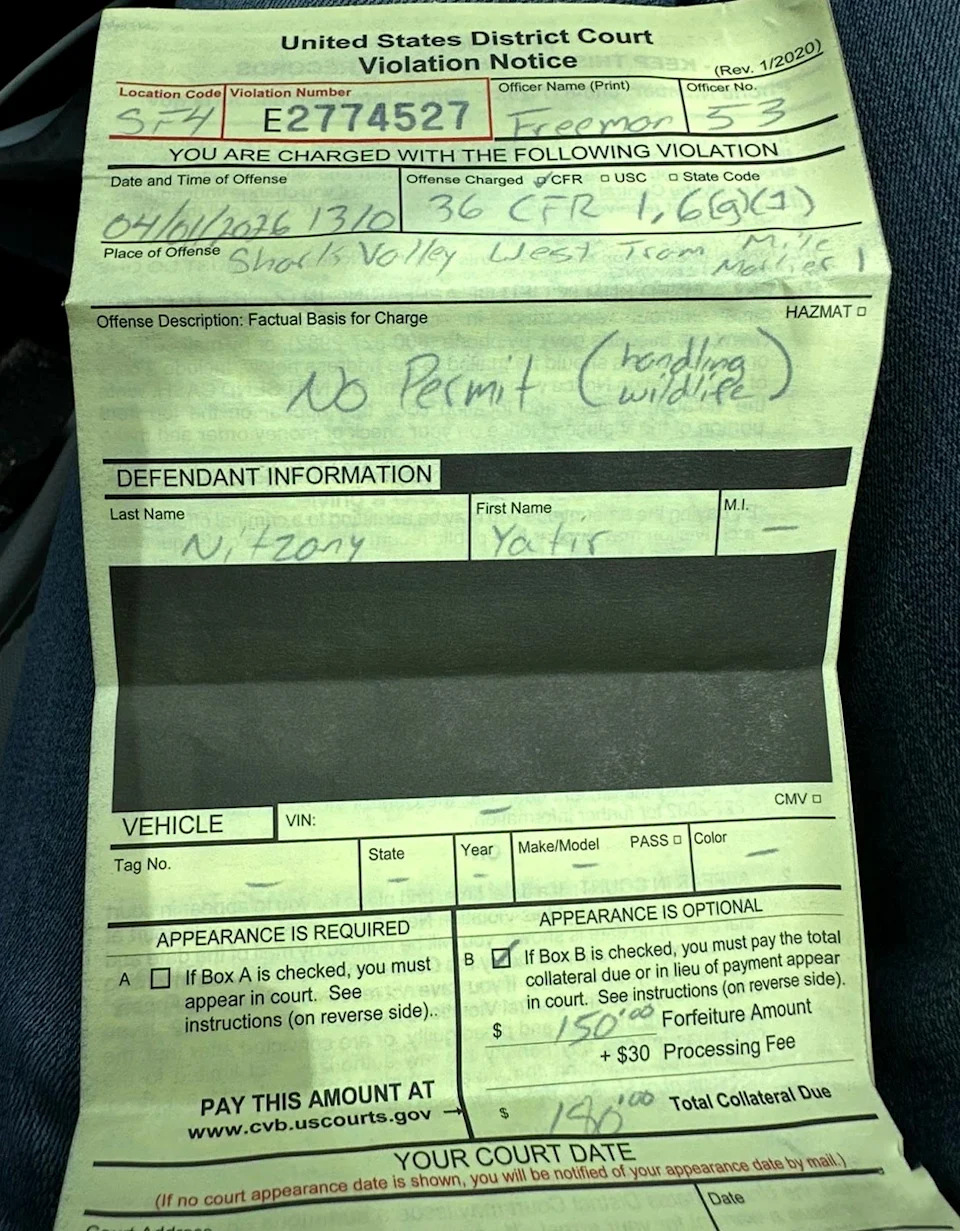 United States District Court
Violation Notice
(Rev. 1/2020)
Location Code
Violation Number
Officer Name (Print)
Officer No.
SF4
E2774527
Freeman
53
YOU ARE CHARGED WITH THE FOLLOWING VIOLATION
Date and Time of Offense
Offense Charged ☑ CFR □ USC □ State Code
04/01/2026 1310
36 CFR 1.6(g)(1)
Place of Offense
Shark Valley West Tram Mile
Marker 1
Offense Description: Factual Basis for Charge
HAZMAT □
No Permit (handling
wildlife)
DEFENDANT INFORMATION
Last Name
First Name
M.I.
Nitzony
Yatir
—
VEHICLE
VIN: —
CMV □
Tag No.
State
Year
Make/Model
PASS □
Color
— — — — —
APPEARANCE IS REQUIRED
A □ If Box A is checked, you must
appear in court. See
instructions (on reverse side).
APPEARANCE IS OPTIONAL
B ☑ If Box B is checked, you must pay the total
collateral due or in lieu of payment appear
in court. See instructions (on reverse side).
$ 150.00 Forfeiture Amount
+ $30 Processing Fee
PAY THIS AMOUNT AT
www.cvb.uscourts.gov →
$ 180.00 Total Collateral Due
YOUR COURT DATE
(If no court appearance date is shown, you will be notified of your appearance date by mail.)
Court Address
Date